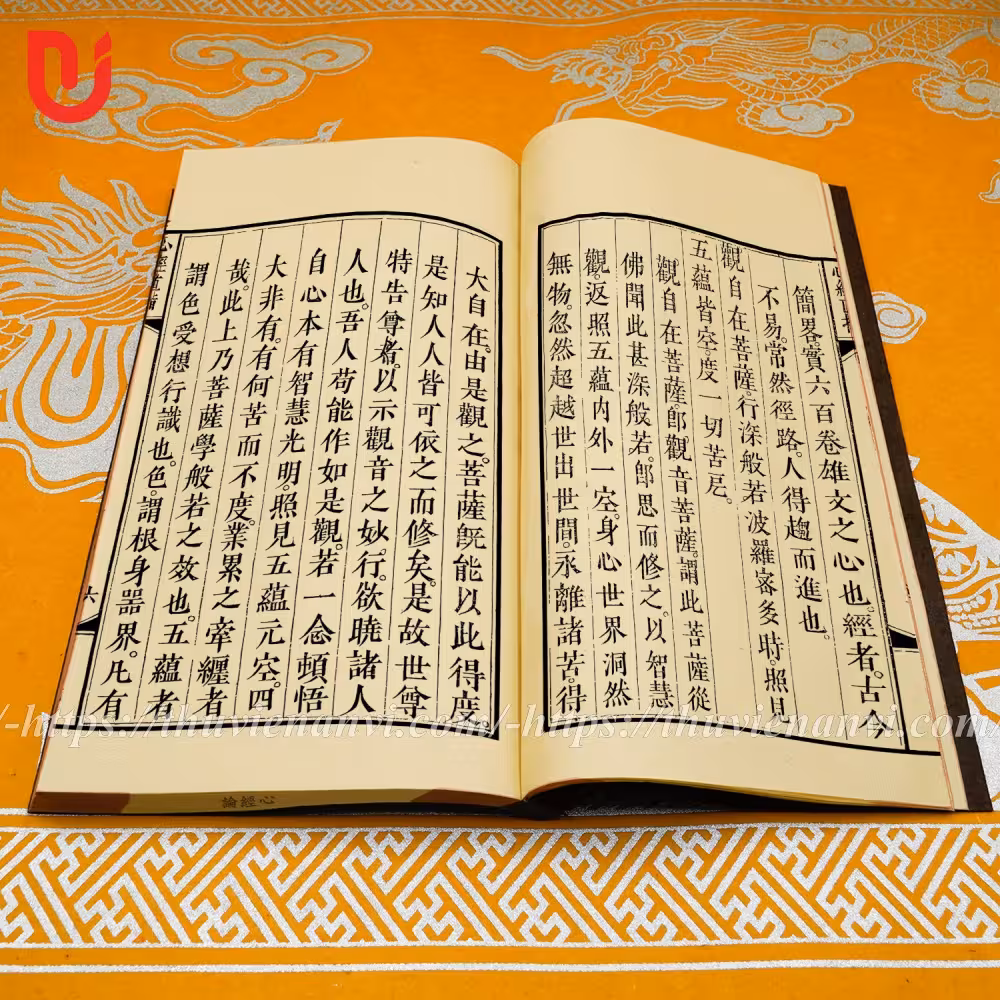 簡畧。實六百卷雄文之心也。經者。古今
不易。常然徑路。人得趨而進也。
觀自在菩薩。行深般若波羅蜜多時。照見
五蘊皆空。度一切苦厄。
觀自在菩薩。卽觀音菩薩。謂此菩薩從
佛聞此甚深般若。卽思而修之。以智慧
觀。返照五蘊内外一空。身心世界洞然
無物。忽然超越世出世間。永離諸苦。得
大自在。由是觀之。菩薩旣能以此得度
是知人人皆可依之而修矣。是故世尊
特告尊者。以示觀音之妙行。欲曉諸人
人也。吾人苟能作如是觀。若一念頓悟
自心本有智慧光明。照見五蘊元空。四
大非有。有何苦而不度。業累之牽纏者
哉。此上乃菩薩學般若之效也。五蘊者
謂色受想行識也。色。謂根身噐界。凡有
六
心經論
-https://thuvienanvi.com/-https://thuvienanvi.com/